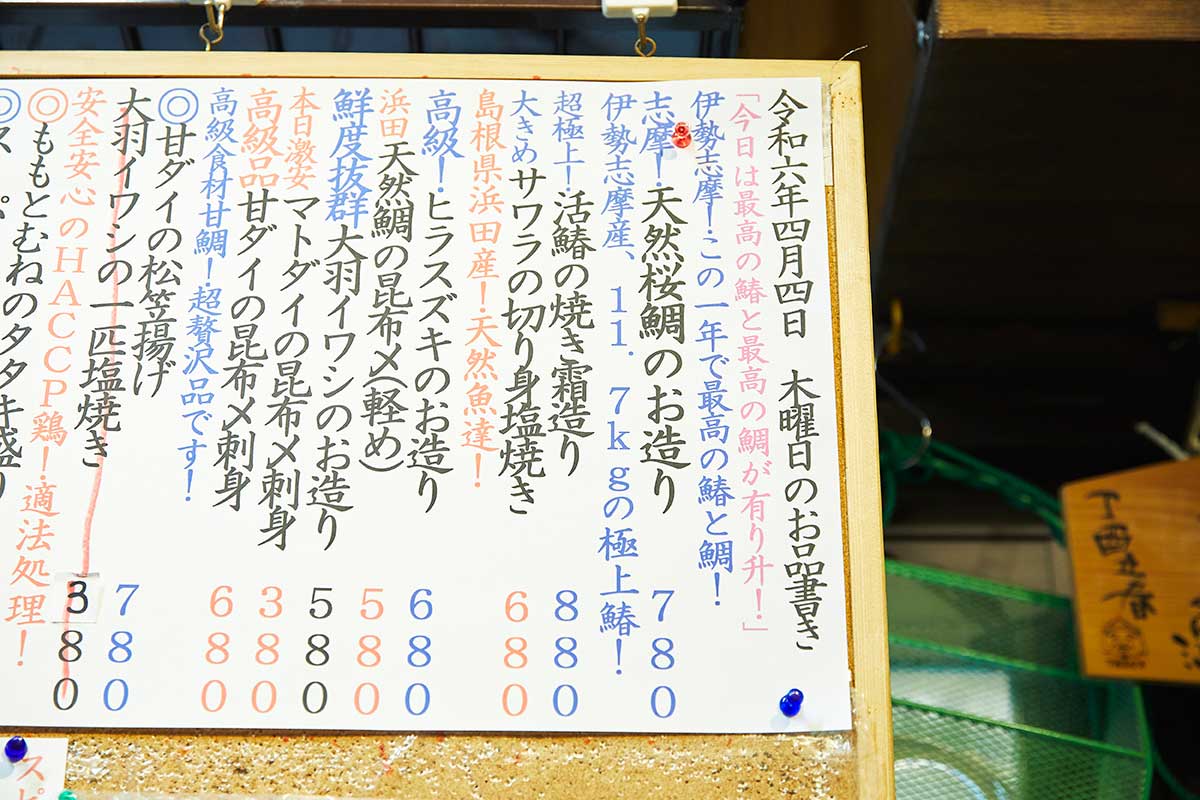 令和六年四月四日　木曜日のお品書き
「今日は最高の鰆と最高の鯛が有り升！」
伊勢志摩！この一年で最高の鰆と鯛！
志摩！天然桜鯛のお造り 780
伊勢志摩産、11．7kgの極上鰆！
超極上！活鰆の焼き霜造り 880
大きめサワラの切り身塩焼き 680
島根県浜田産！天然魚達！
高級！ヒラスズキのお造り 680
浜田天然鯛の昆布〆(軽め) 580
鮮度抜群大羽イワシのお造り 580
本日激安マトダイの昆布〆刺身 380
高級品甘ダイの昆布〆刺身 680
高級食材甘鯛！超贅沢品です！
◎甘ダイの松笠揚げ 780
大羽イワシの一匹塩焼き 380
安全安心のHACCP鶏！適法処理！
◎ももとむねのタタキ盛り
スピ